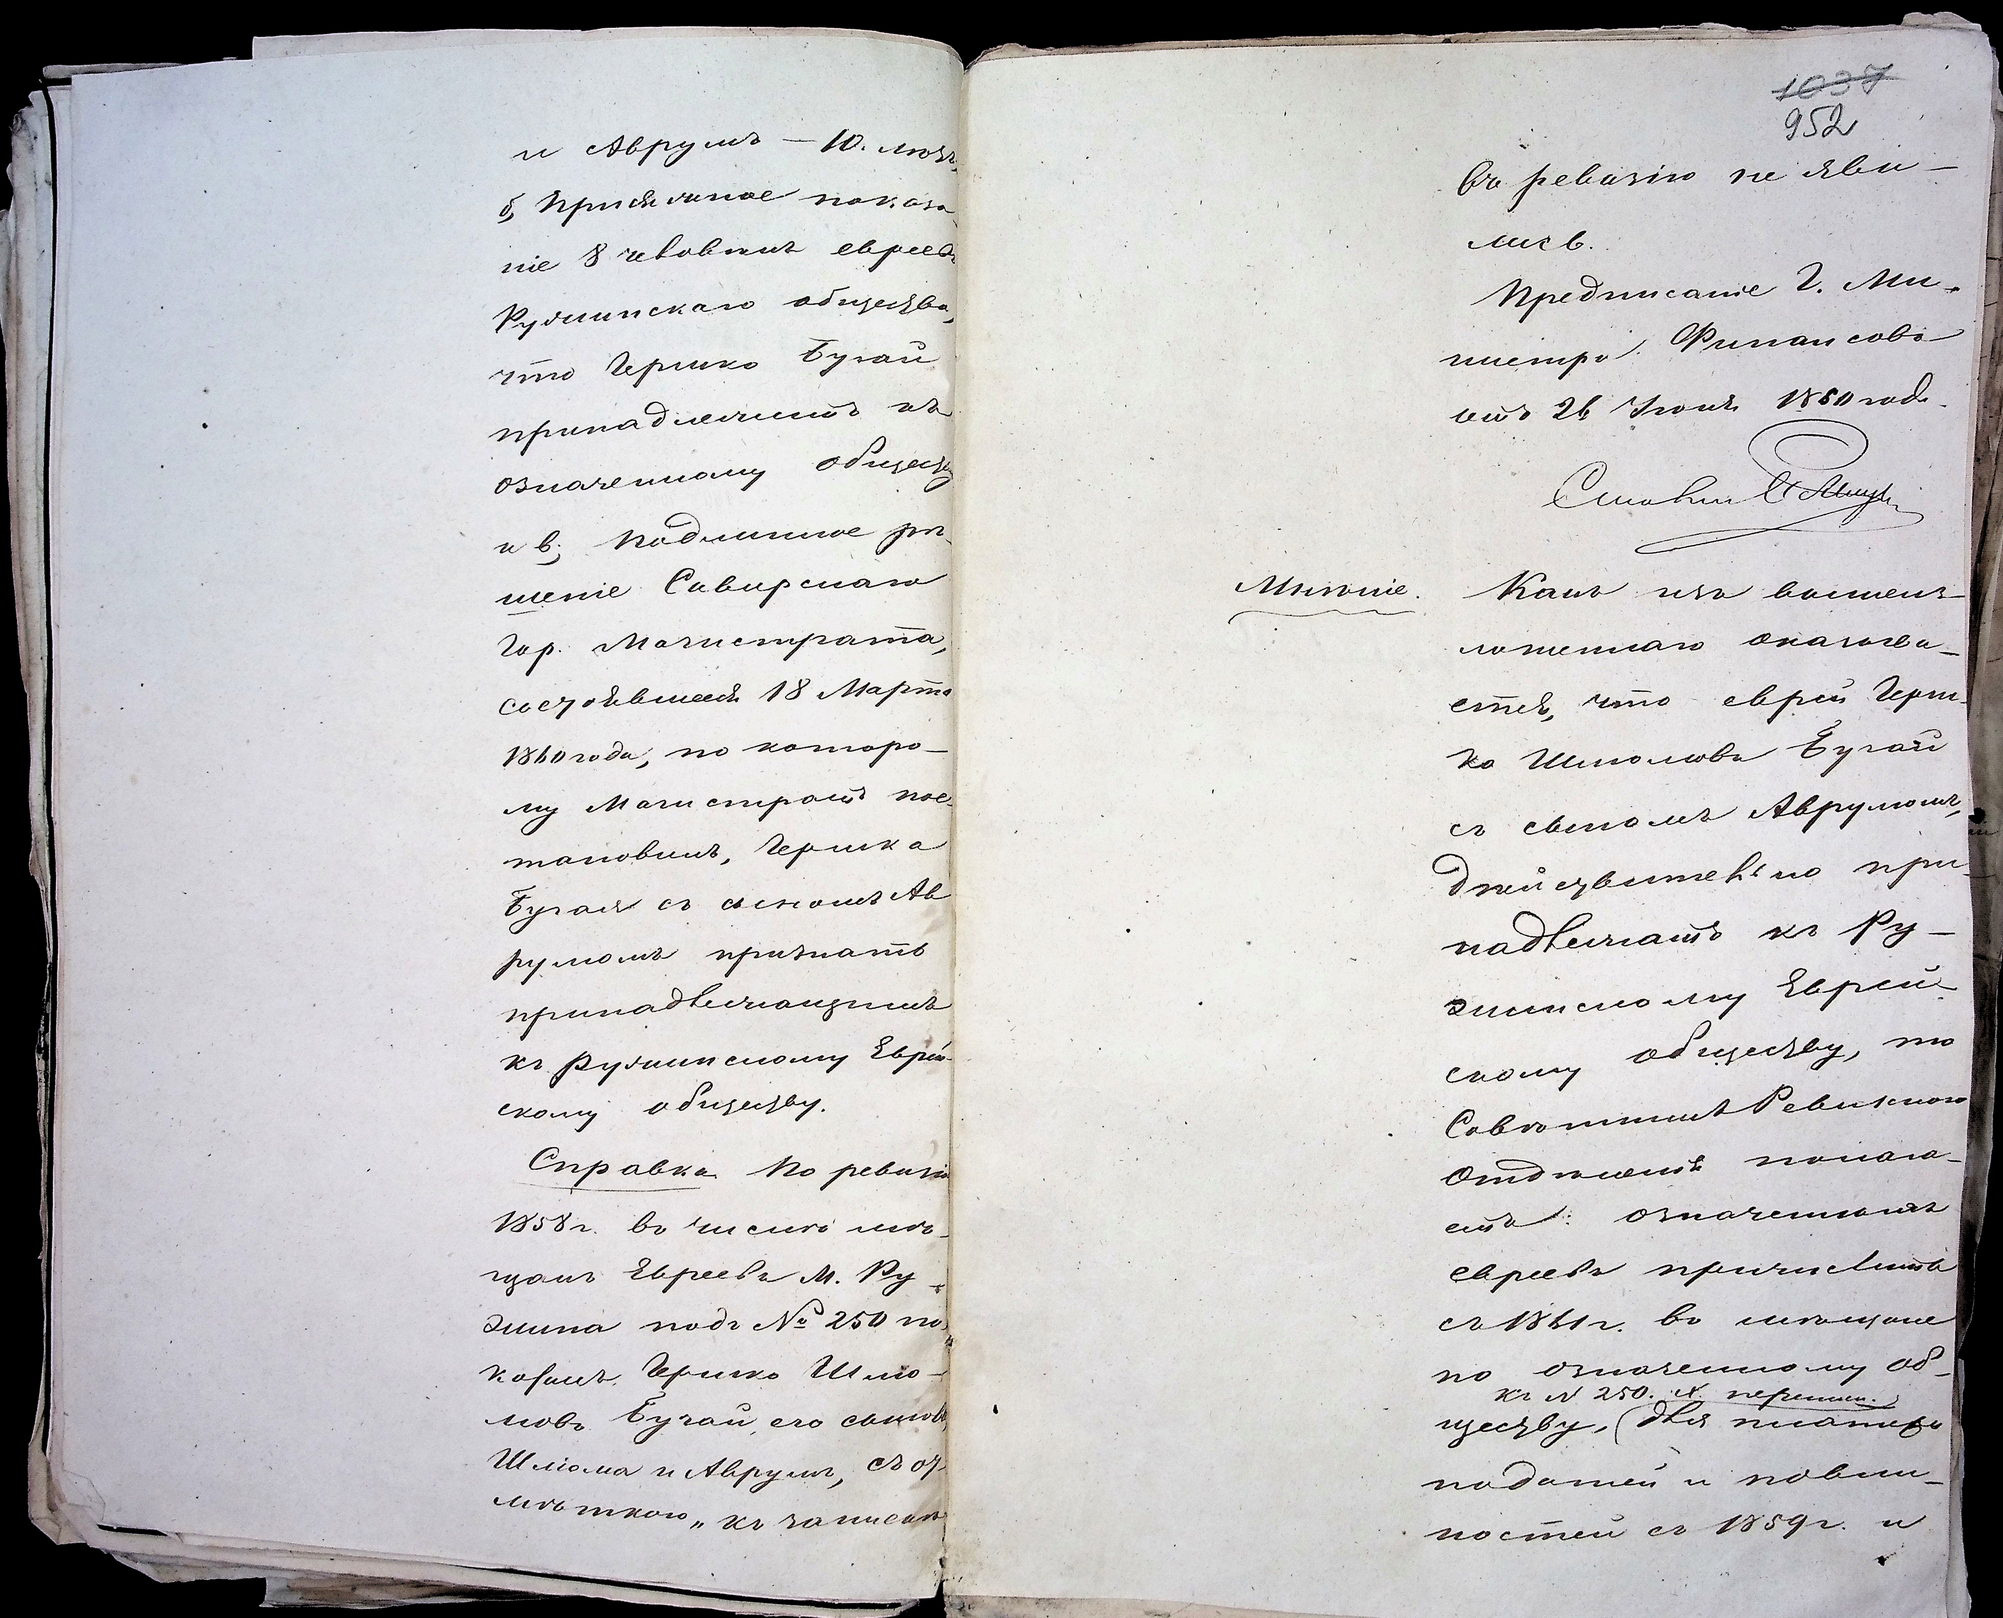 и Аврумъ — 10. лѣтъ,
б, Присяжное показа
ніе 8 человѣкъ евреевъ
Ружинскаго общества,
что Гершко Бугай
принадлежитъ къ
означенному обществу
и в; подлинное рѣ-
шеніе Сквирскаго
Гор. Магистрата,
состоявшееся 18 Марта
1860 года, по которо-
му Магистратъ пос-
тановилъ, Гершка
Бугая съ сыномъ Ав
румомъ признать
принадлежащимъ
къ Ружинскому Еврей-
скому обществу.
Справка По ревизіи
1858 г. въ числѣ мѣ-
щанъ Евреевъ М. Ру-
жина подъ № 250 по-
казанъ Гершко Шмо-
мовъ Бугай, его сыновья
Шліома и Аврумъ, съ от
мѣткою „къ запискѣ
1037
952
въ ревизію не яви-
лись.
Предписаніе Г. Ми-
нистра Финансовъ
отъ 26 Іюня 1860 года.
Мнѣніе. Какъ изъ вышеиз-
ложеннаго оказыва-
ется, что еврей Герш-
ко Шмомовъ Бугай
съ сыномъ Аврумомъ,
дѣйствительно при-
надлежатъ къ Ру-
жинскому Еврей-
скому обществу, то
Совѣтникъ Ревизскаго
Отдѣленія полага-
етъ: означенныхъ
евреевъ причислить
съ 1861 г. въ мѣщане
по означенному об-
къ N 250.
ществу, (для платежа
податей и повин-
ностей съ 1859 г. и